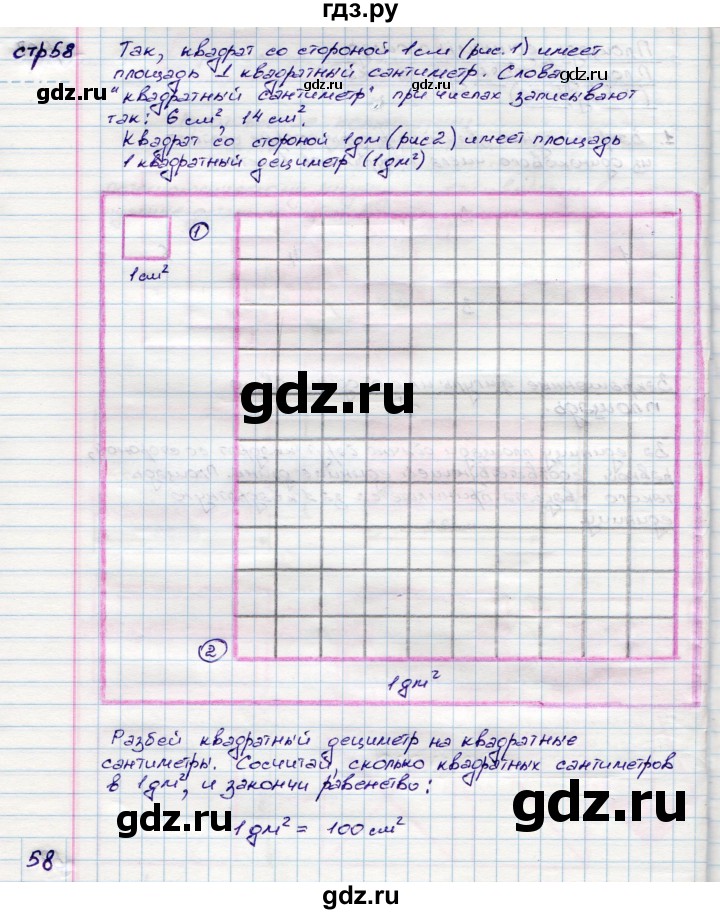 гдз.ру
стр58
Так, квадрат со стороной 1см (рис.1) имеет
площадь 1 квадратный сантиметр. Слова
gdz.ru gdz.ru gdz.ru
"квадратный сантиметр", при числах записывают
так: 6 см², 14 см².
Квадрат со стороной 1дм (рис2) имеет площадь
1 квадратный дециметр (1дм²)
1
1см²
gdz.ru
2
1дм²
Разбей квадратный дециметр на квадратные
сантиметры. Сосчитай, сколько квадратных сантиметров
в 1дм², и закончи равенство:
gdz.ru gdz.ru gdz.ru
1дм² = 100 см²
58
gdz.ru